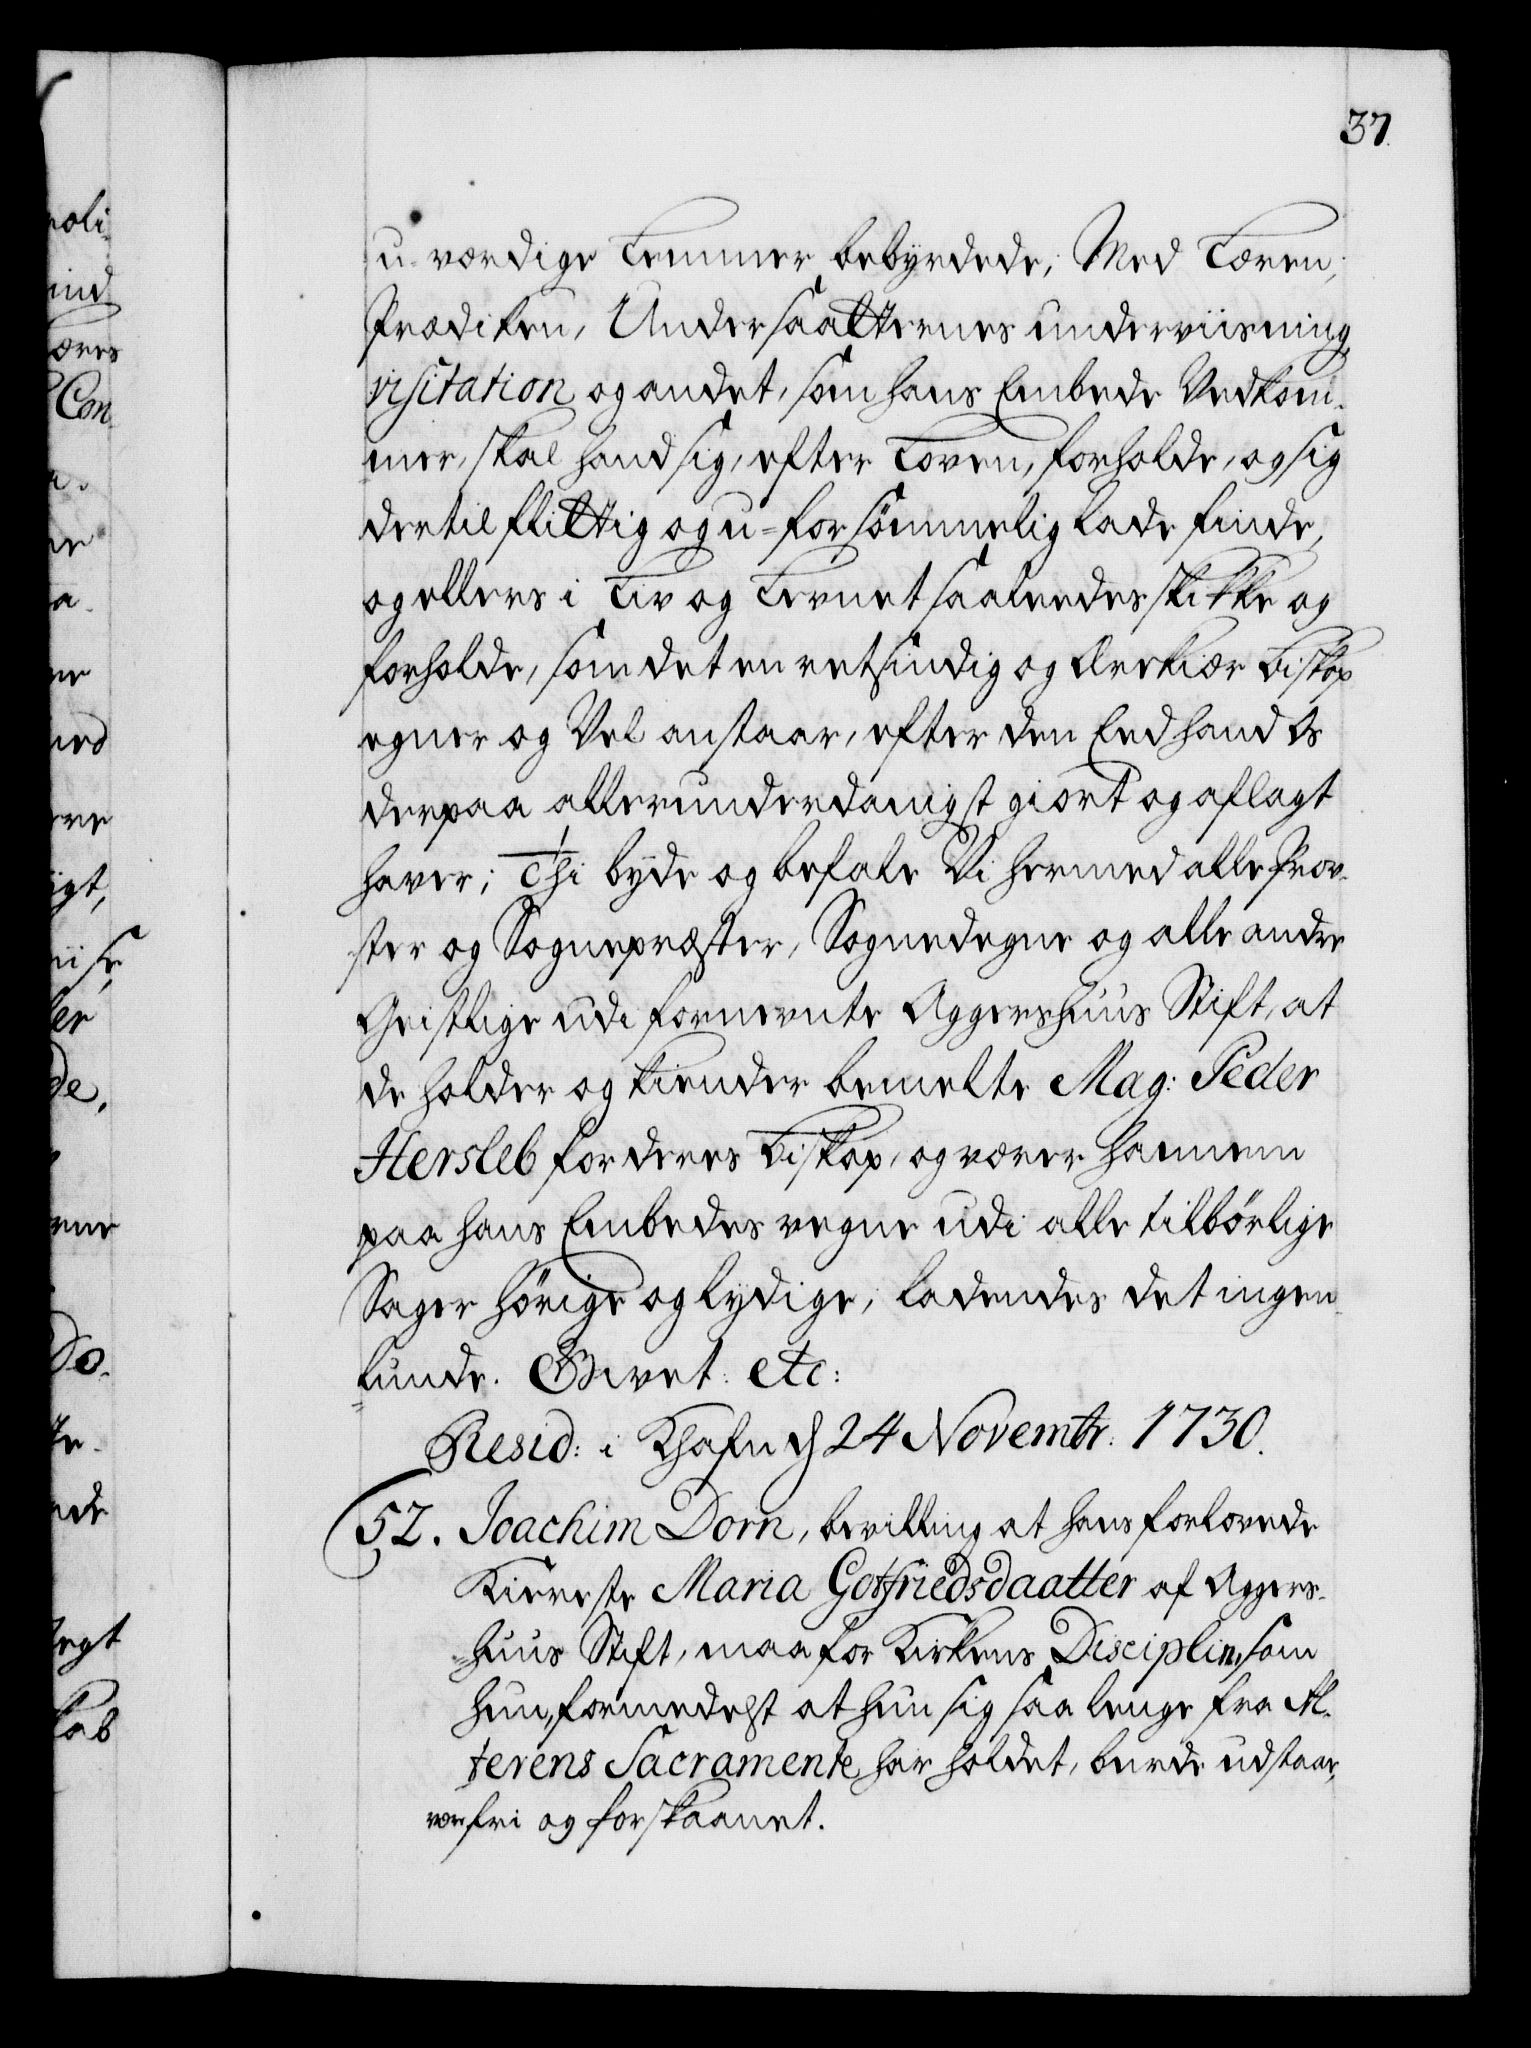 37.
u-værdige Lemmer bebyrdede; Med Læren,
Prædiken, Undersaatternes underviisning,
visitation og andet, som hans Embede Vedkom-
mer, skal hand sig, efter Loven, forholde, og sig
dertil flittig og u-forsømmelig lade finde,
og ellers i Liv og Levnet saaleedes skikke og
forholde, som det en retsindig og Ærekiær Biskop
egner og Vel anstaar, efter den Eed hand Os
derpaa allerunderdanigst giort og aflagt
haver; Thi byde og befale Vi hermed alle Prov-
ster og Sognepræster, Sognedegne og alle andre
Geistlige udi fornevnte Aggershuus Stift, at
de holder og kiender bemelte Mag: Peder
Hersleb for deres Biskop, og værer hannem
paa hans Embedes vegne udi alle tilbørlige
Sager hørige og lydige; ladendes det ingen-
lunde. Givet: etc:
Resid: i Khafn d 24 Novembr: 1730.
52. Joachim Dorn, bevilling at hans forlovede
Kiereste Maria Gotfriedsdaatter af Aggers-
huus Stift, maa for Kirkens Disciplin, som
hun, formedelst at hun sig saa lenge fra Al-
terens Sacramente har holdet, burde udstaar,
være fri og forskaanet.
noli-
ind
æres
Con-
a.
er
ta-
re
med
ere
igt,
iise,
ler
de,
rne
Do-
te-
nde
degt
kab